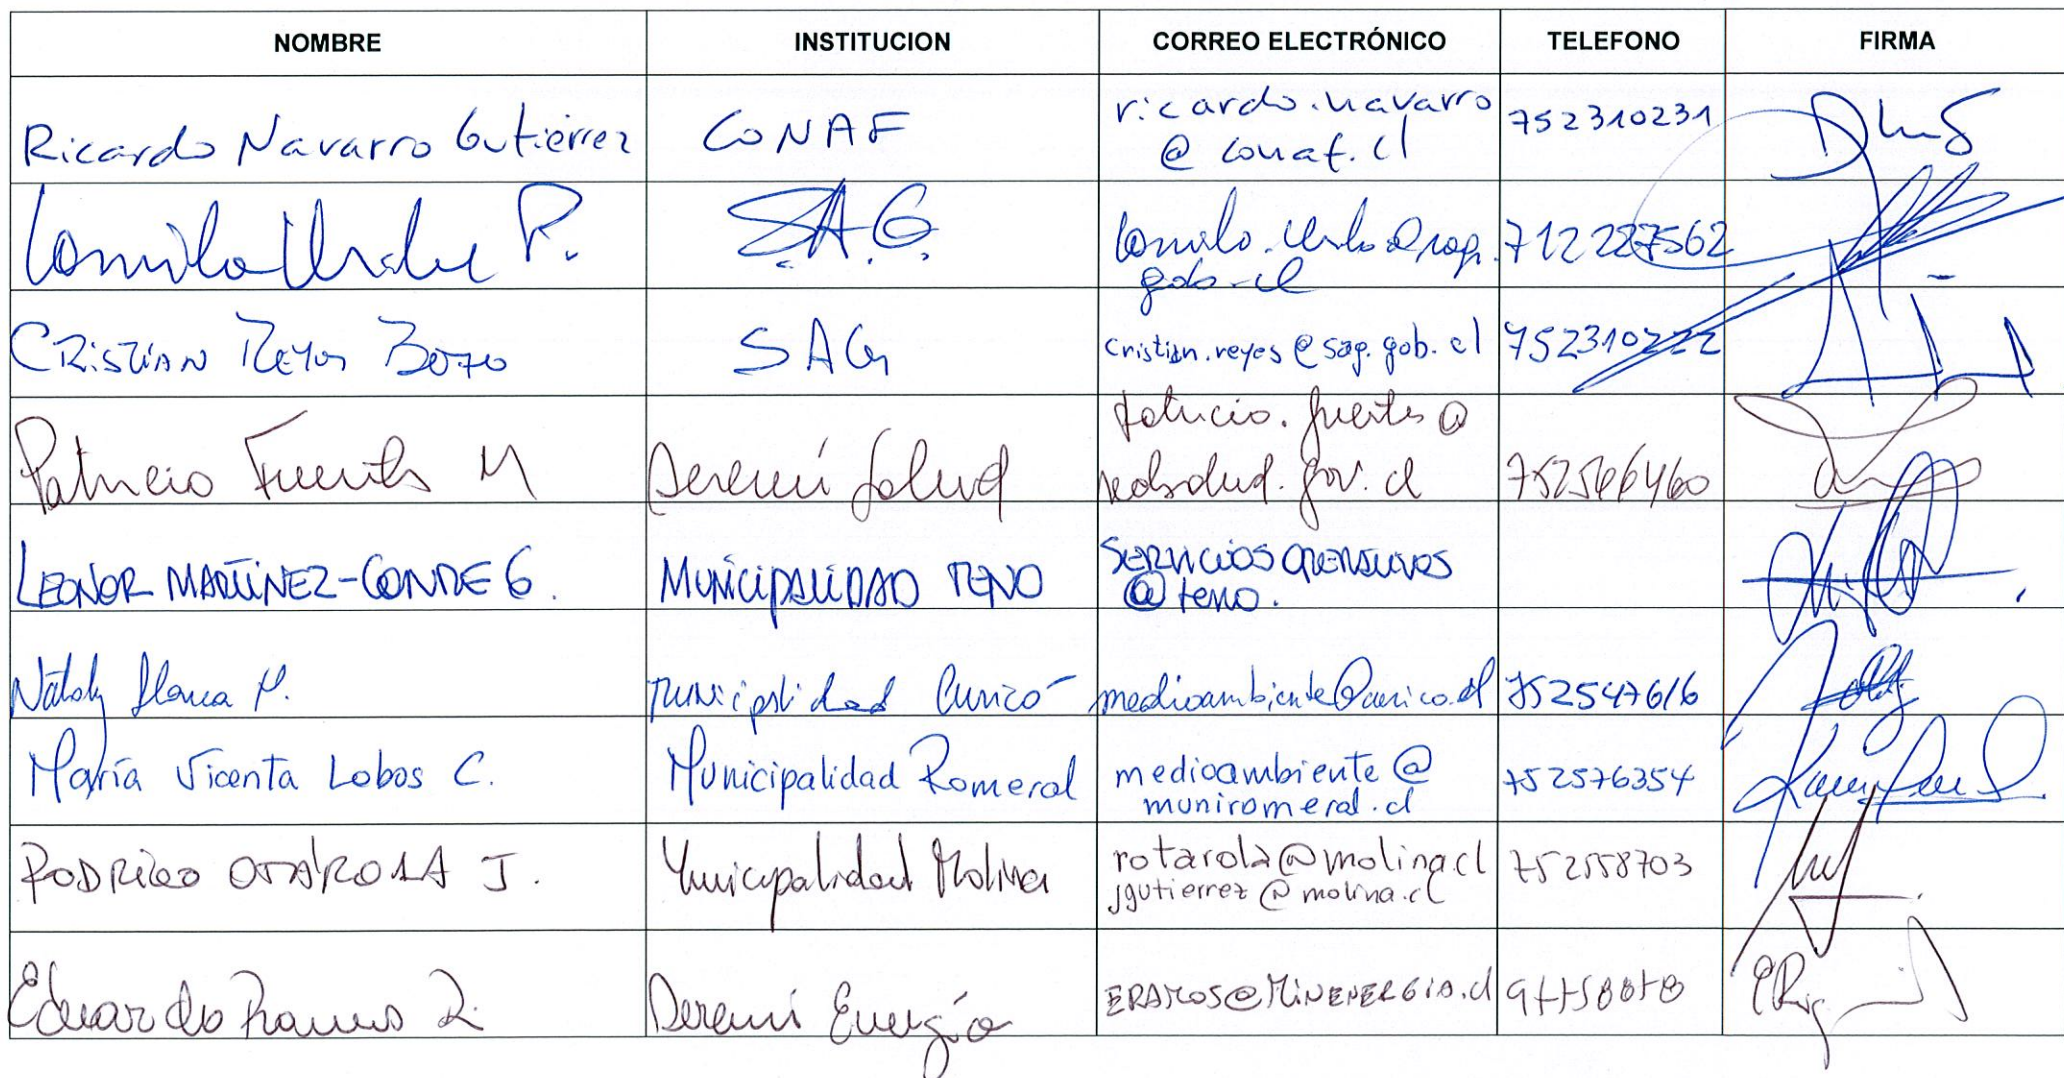 NOMBRE INSTITUCION CORREO ELECTRÓNICO TELEFONO FIRMA
Ricardo Navarro Gutiérrez CONAF ricardo.navarro 752310231
@conaf.cl
P. S.A.G. 712227562
CRistiAN Reyes Bozo SAG cristian.reyes@sag.gob.cl 752310222
Patricio Fuentes M Seremi Salud patricio.fuentes@
redsalud.gov.cl 752566460
LEONOR MARTÍNEZ-CONDE G. MUNICIPALIDAD TENO SERVICIOS
@teno.
Nataly M. Municipalidad Curicó medioambiente@curico.cl 752547616
María Vicenta Lobos C. Municipalidad Romeral medioambiente@ 752576354
muniromeral.cl
RODRIGO OTÁROLA J. Municipalidad Molina rotarola@molina.cl 752558703
jgutierrez@molina.cl
Eduardo Ramos R. Seremi Energía ERAMOS@MINENERGIA.cl